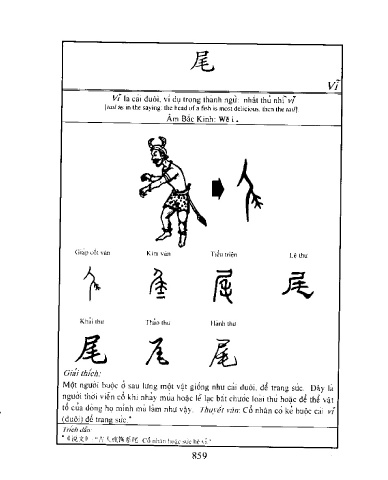 尾
Vĩ
Vĩ là cái đuôi, ví dụ trong thành ngữ: nhất thủ nhì vĩ
[tail as in the saying: the head of a fish is most delicious, then the tail]
Âm Bắc Kinh: Wěi.
Giáp cốt văn Kim văn Tiểu triện Lệ thư
尾
Khải thư Thảo thư Hành thư
尾 尾 尾
Giải thích:
Một người buộc ở sau lưng một vật giống như cái đuôi, để trang sức. Đây là
người thời viễn cổ khi nhảy múa hoặc lễ lạc bắt chước loài thú hoặc để thể vật
tổ của dòng họ mình mà làm như vậy. Thuyết văn: Cổ nhân có kẻ buộc cái vĩ
(đuôi) để trang sức.*
Trích dẫn:
*《说文》: "古人或饰系尾 Cổ nhân hoặc sức hệ vĩ."
859